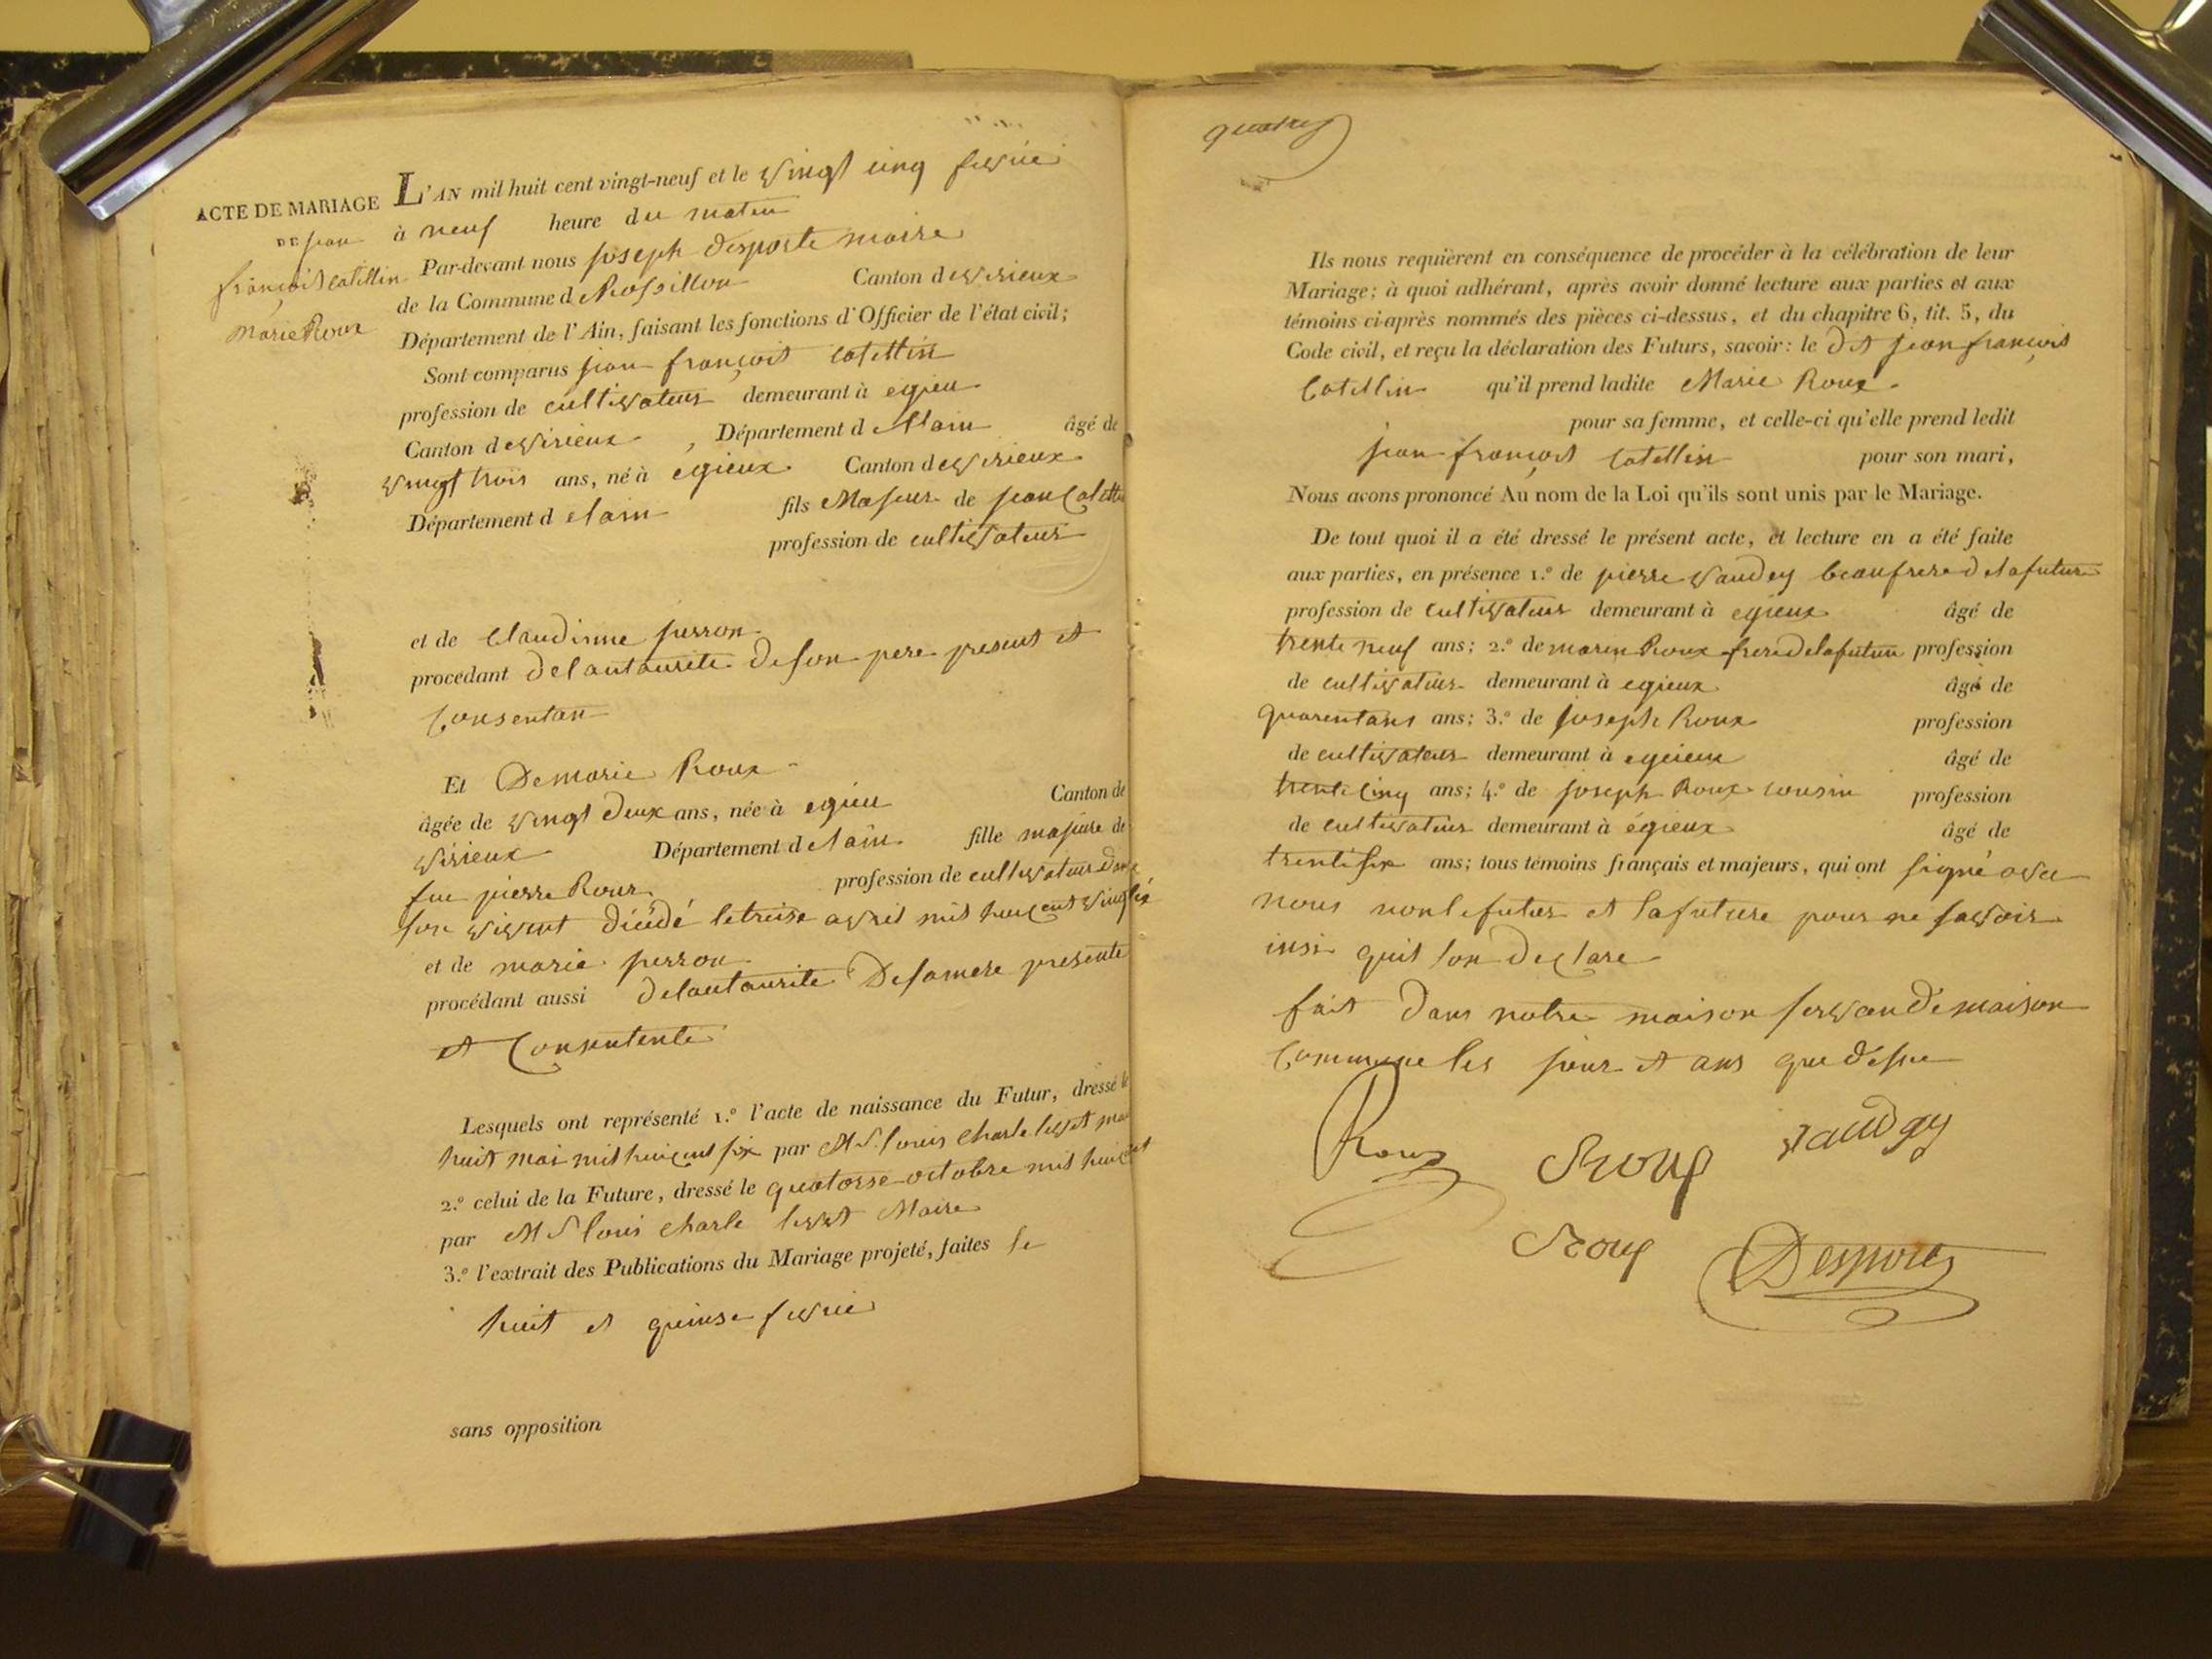 ACTE DE MARIAGE
DE jean
françois Catillin
marie Roux
L'AN mil huit cent vingt-neuf et le vingt cinq fevrie
à neuf heure du matin
Par-devant nous joseph desporte maire
de la Commune d Rossillon Canton de virieux
Département de l'Ain, faisant les fonctions d'Officier de l'état civil;
Sont comparus jean françois Catillin
profession de cultivateur demeurant à egieu
Canton de virieux, Département d Elain âgé de
vingt trois ans, né à égieux Canton de virieux
Département d elain fils Majeur de jean
profession de cultivateur
et de Claudinne perron
procédant de lautaurité de son pere present et
Consentan
Et De marie Roux
âgée de vingt deux ans, née à egieu Canton de
virieux Département d elain fille majeure de
feu pierre Roux profession de cultivateur
son vivent décédé le treise avril mil huit cent
et de marie perron
procédant aussi de lautaurité De sa mere presente
et Consentente
Lesquels ont représenté 1.º l'acte de naissance du Futur, dressé le
huit mai mil huit cent six par Mr louis Charle
2.º celui de la Future, dressé le quatorse octobre mil huit
par Mr louis charle Maire
3.º l'extrait des Publications du Mariage projeté, faites le
huit et quinse fevrie
sans opposition
quatre
Ils nous requièrent en conséquence de procéder à la célébration de leur
Mariage; à quoi adhérant, après avoir donné lecture aux parties et aux
témoins ci-après nommés des pièces ci-dessus, et du chapitre 6, tit. 5, du
Code civil, et reçu la déclaration des Futurs, savoir: le dit jean françois
Catillin qu'il prend ladite Marie Roux
pour sa femme, et celle-ci qu'elle prend ledit
jean françois Catillin pour son mari,
Nous avons prononcé Au nom de la Loi qu'ils sont unis par le Mariage.
De tout quoi il a été dressé le présent acte, et lecture en a été faite
aux parties, en présence 1.º de pierre vaudey beaufrere de la future
profession de cultivateur demeurant à egieux âgé de
trente neuf ans; 2.º de marin Roux frere de la future profession
de cultivateur demeurant à egieux âgé de
quarentans ans; 3.º de joseph Roux profession
de cultivateur demeurant à egieux âgé de
trente cinq ans; 4.º de joseph Roux cousin profession
de cultivateur demeurant à égieux âgé de
trente six ans; tous témoins français et majeurs, qui ont signé avec
nous non le futur et la future pour ne savoir
insi quil lon declare
fait dans notre maison servan de maison
Commune les jour et ans que dessu
Roux Roux vaudey
Roux Desporte